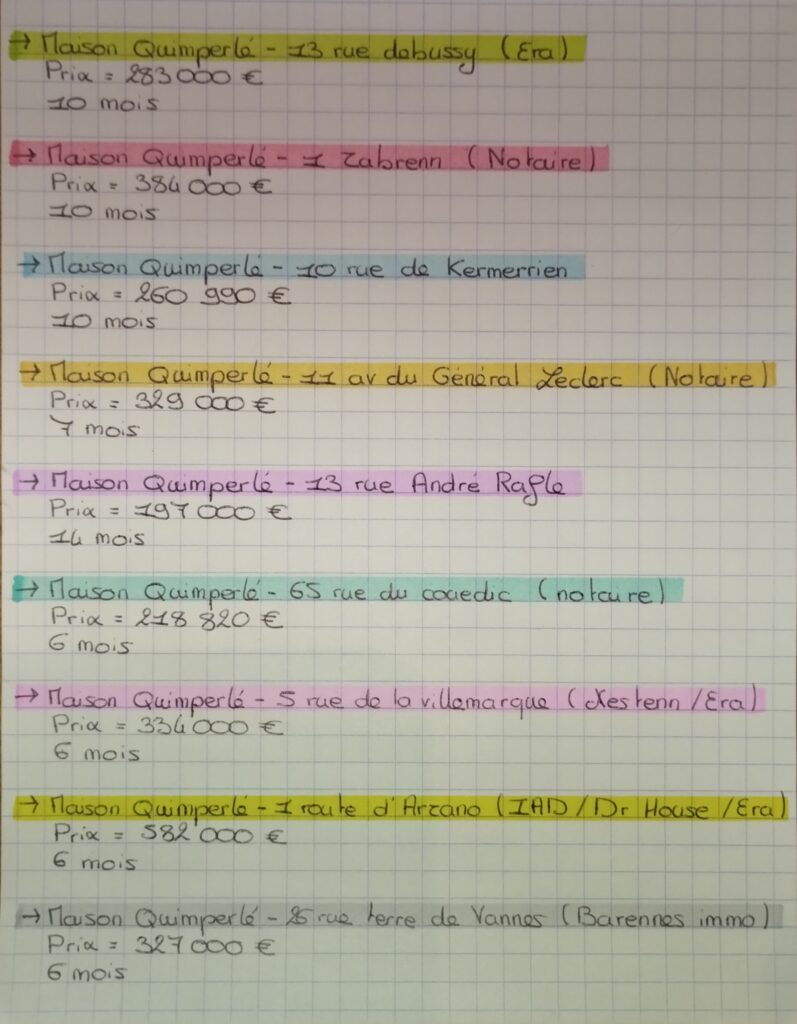 → Maison Quimperlé - 13 rue debussy (Era)
Prix = 283 000 €
10 mois
→ Maison Quimperlé - 1 Zabrenn (Notaire)
Prix = 384 000 €
10 mois
→ Maison Quimperlé - 10 rue de Kermerrien
Prix = 260 990 €
10 mois
→ Maison Quimperlé - 11 av du Général Leclerc (Notaire)
Prix = 329 000 €
7 mois
→ Maison Quimperlé - 13 rue André Rafle
Prix = 197 000 €
14 mois
→ Maison Quimperlé - 65 rue du couedic (notaire)
Prix = 218 820 €
6 mois
→ Maison Quimperlé - 5 rue de la villemarque (Nestenn / Era)
Prix = 334 000 €
6 mois
→ Maison Quimperlé - 1 route d'Arzano (IAD / Dr House / Era)
Prix = 582 000 €
6 mois
→ Maison Quimperlé - rue terre de Vannes (Barennes immo)
Prix = 327 000 €
6 mois